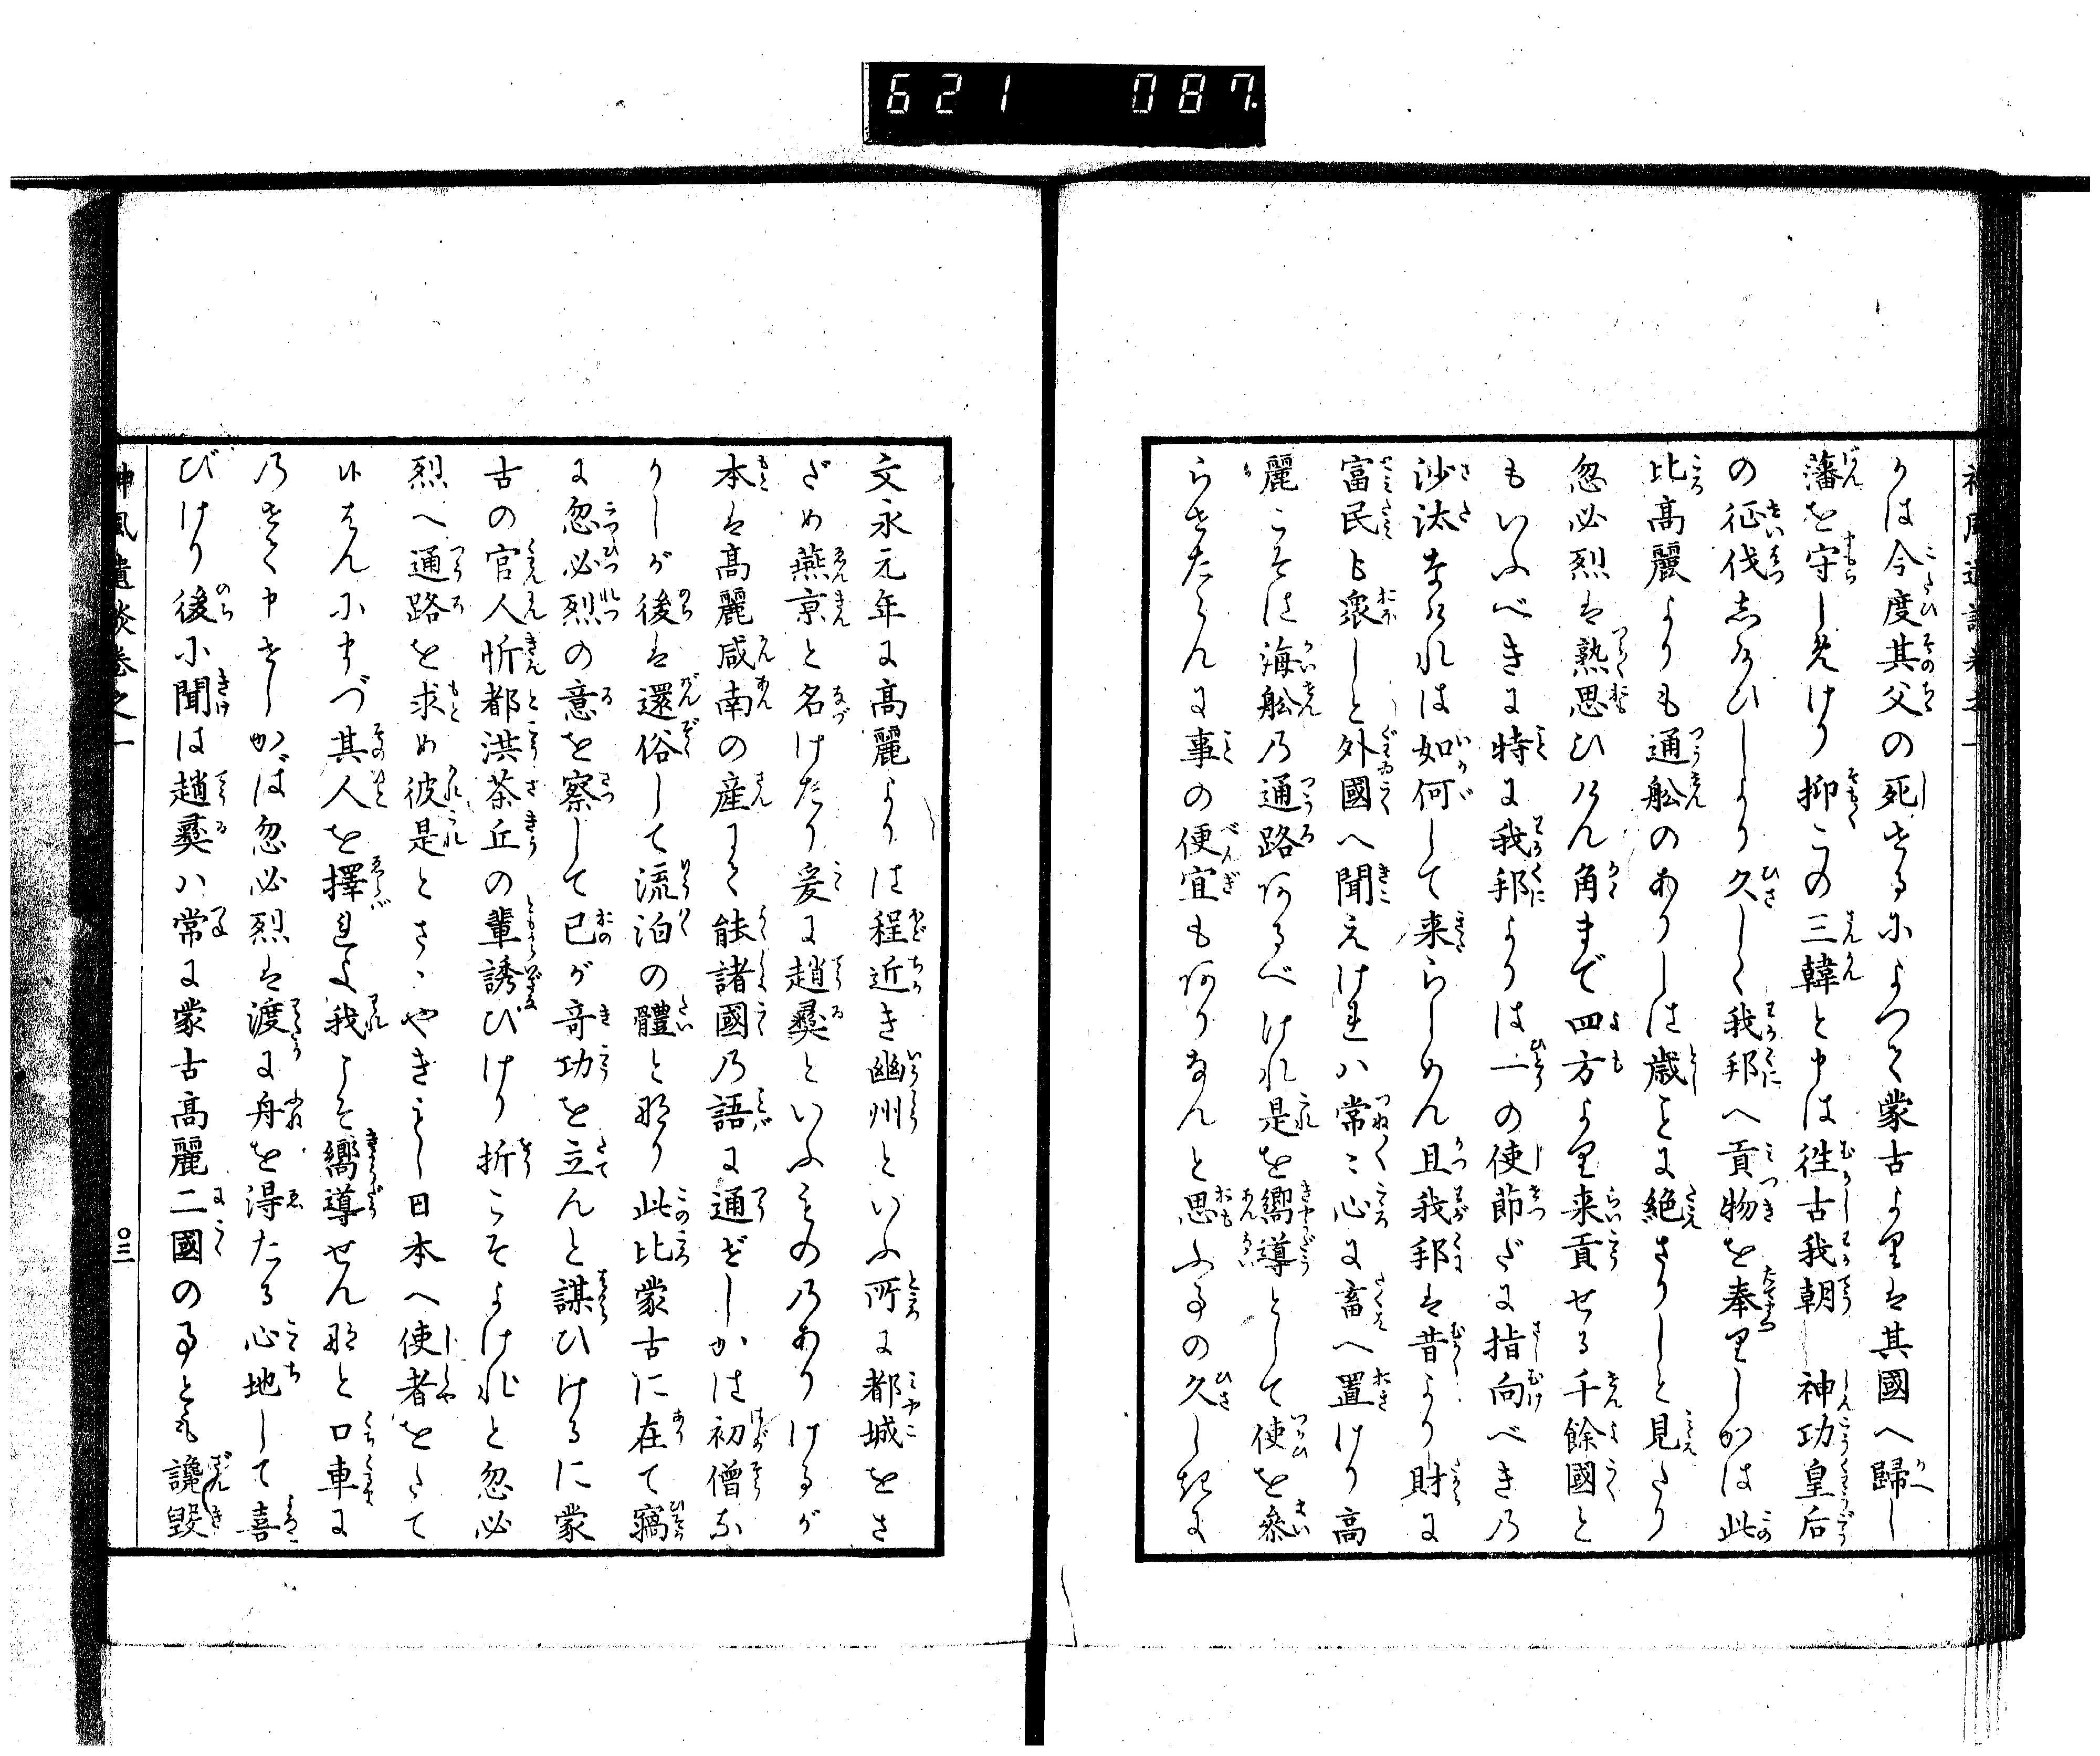 621 087
りは今度其父の死せるによつて蒙古よりは其國へ歸し
藩を守しめけり抑この三韓と申は徃古我朝 神功皇后
の征伐志給ひしより久しく我邦へ貢物を奉りしかは此
比高麗よりも通舩のありしは歳々に絶さりしと見えたり
忽必烈は熟思ひけん角まで四方より来貢せる千餘國と
もいふべきに特に我邦よりは一の使節だに指向べきの
沙汰なけれは如何して来らしめん且我邦は昔より財に
富民も衆しと外國へ聞えけれハ常〻心に畜へ置けり高
麗こそは海舩の通路あるべけれ是を嚮導として使を参
らせたらんに事の便宜もありなんと思ふ事の久しきに
文永元年に高麗よりは程近き幽州といふ所に都城をさ
だめ燕京と名けたり爰に趙彛といふもの乃ありけるが
本は高麗咸南の産にて能諸國乃語に通ぜしかは初僧な
りしが後は還俗して流泊の體と那り此比蒙古に在て竊
に忽必烈の意を察して已が竒功を立んと謀ひけるに蒙
古の官人忻都洪茶丘の輩誘びけり折こそよけれと忽必
烈へ通路を求め彼是とさゝやきこし日本へ使者をたて
られんにまづ其人を擇れよ我こそ嚮導せん那と口車に
乃せて申せしかば忽必烈は渡に舟を得たる心地して喜
びけり後に聞は趙彛ハ常に蒙古高麗二國の事とも讒毀
神風遺談巻之一
〇三